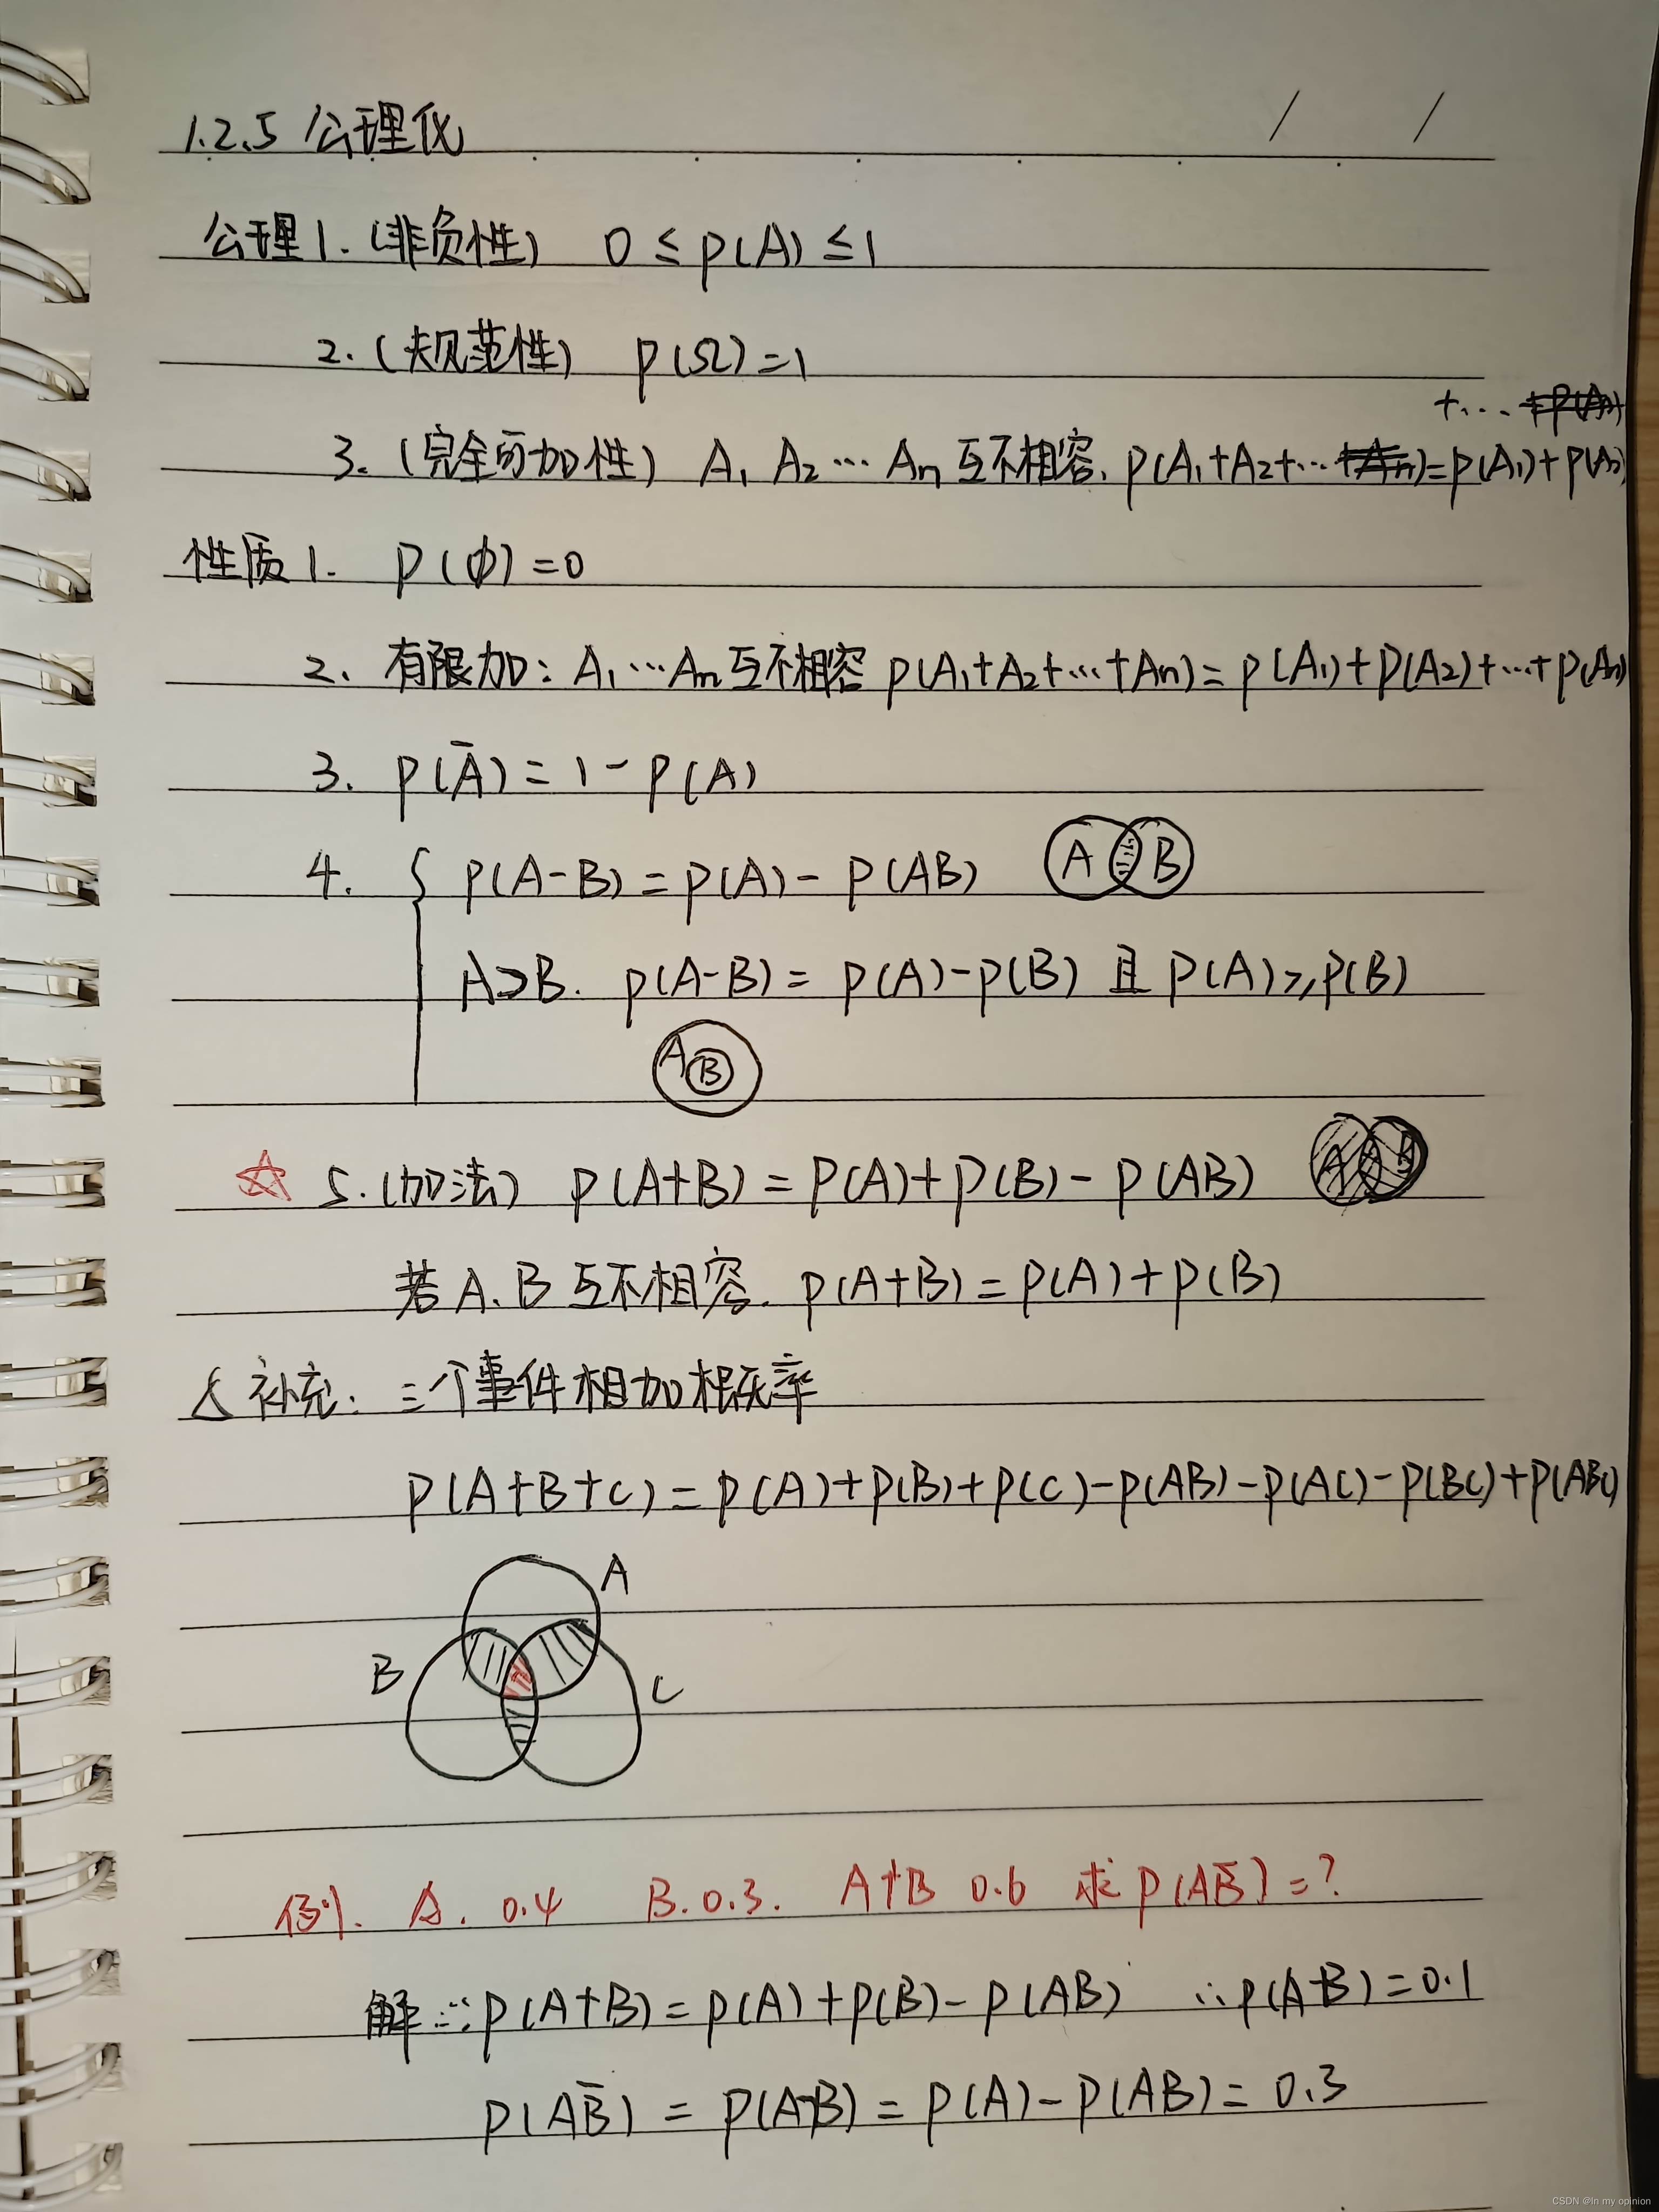 1.2.5 公理化 / /
公理1.(非负性) 0≤p(A)≤1
2.(规范性) p(Ω)=1
+...
3.(完全可加性) A₁ A₂…An 互不相容. p(A₁+A₂+…)=p(A₁)+p(A₂)
性质1. P(φ)=0
2. 有限加: A₁…An互不相容 p(A₁+A₂+…+An)=p(A₁)+p(A₂)+…+p(An)
3. p(A̅)=1-p(A)
4. { p(A-B)=p(A)-p(AB) A B
A⊃B. p(A-B)=p(A)-p(B) 且 p(A)≥p(B)
A B
☆ 5.(加法) p(A+B)=P(A)+p(B)-p(AB) A B
若A.B互不相容. p(A+B)=p(A)+p(B)
补充: 三个事件相加概率
p(A+B+C)=p(A)+p(B)+p(C)-p(AB)-p(AC)-p(BC)+p(ABC)
A
B C
例1. A. 0.4 B.0.3. A+B 0.6 求p(AB̅)=?
解:∵p(A+B)=p(A)+p(B)-p(AB) ∴p(AB)=0.1
p(AB̅)=p(A-B)=p(A)-p(AB)=0.3
CSDN @In my opinion